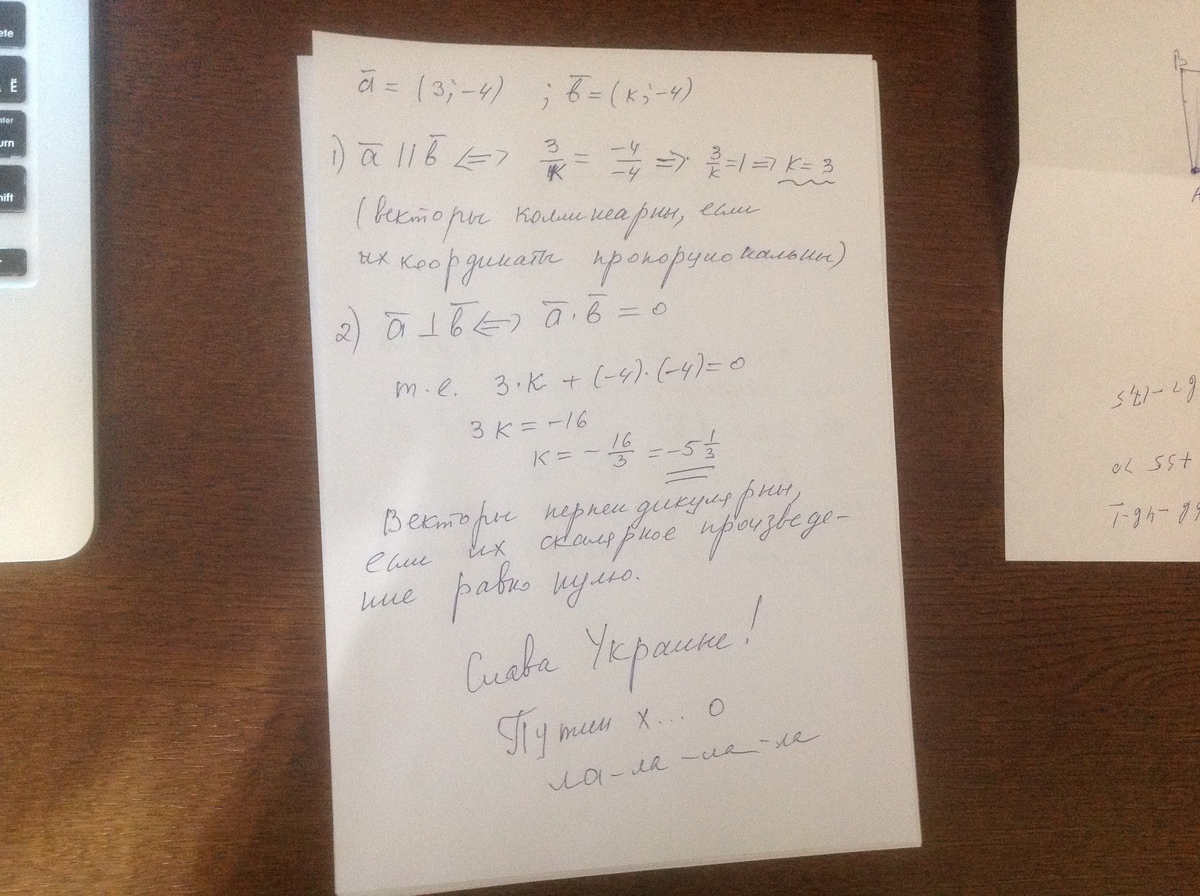 ete
Ё
enter
urn
hift
B
A
ā = (3; -4) ; b̄ = (к; -4)
1) ā || b̄ <=> 3/к = -4/-4 => 3/к = 1 => к = 3
(векторы коллинеарны, если
их координаты пропорциональны)
2) ā ⊥ b̄ <=> ā · b̄ = 0
т.е. 3·к + (-4)·(-4) = 0
3к = -16
к = - 16/3 = -5 1/3
Векторы перпендикулярны,
если их скалярное произведе-
ние равно нулю.
Слава Украине!
Путин х... о
ла-ла-ла-ла